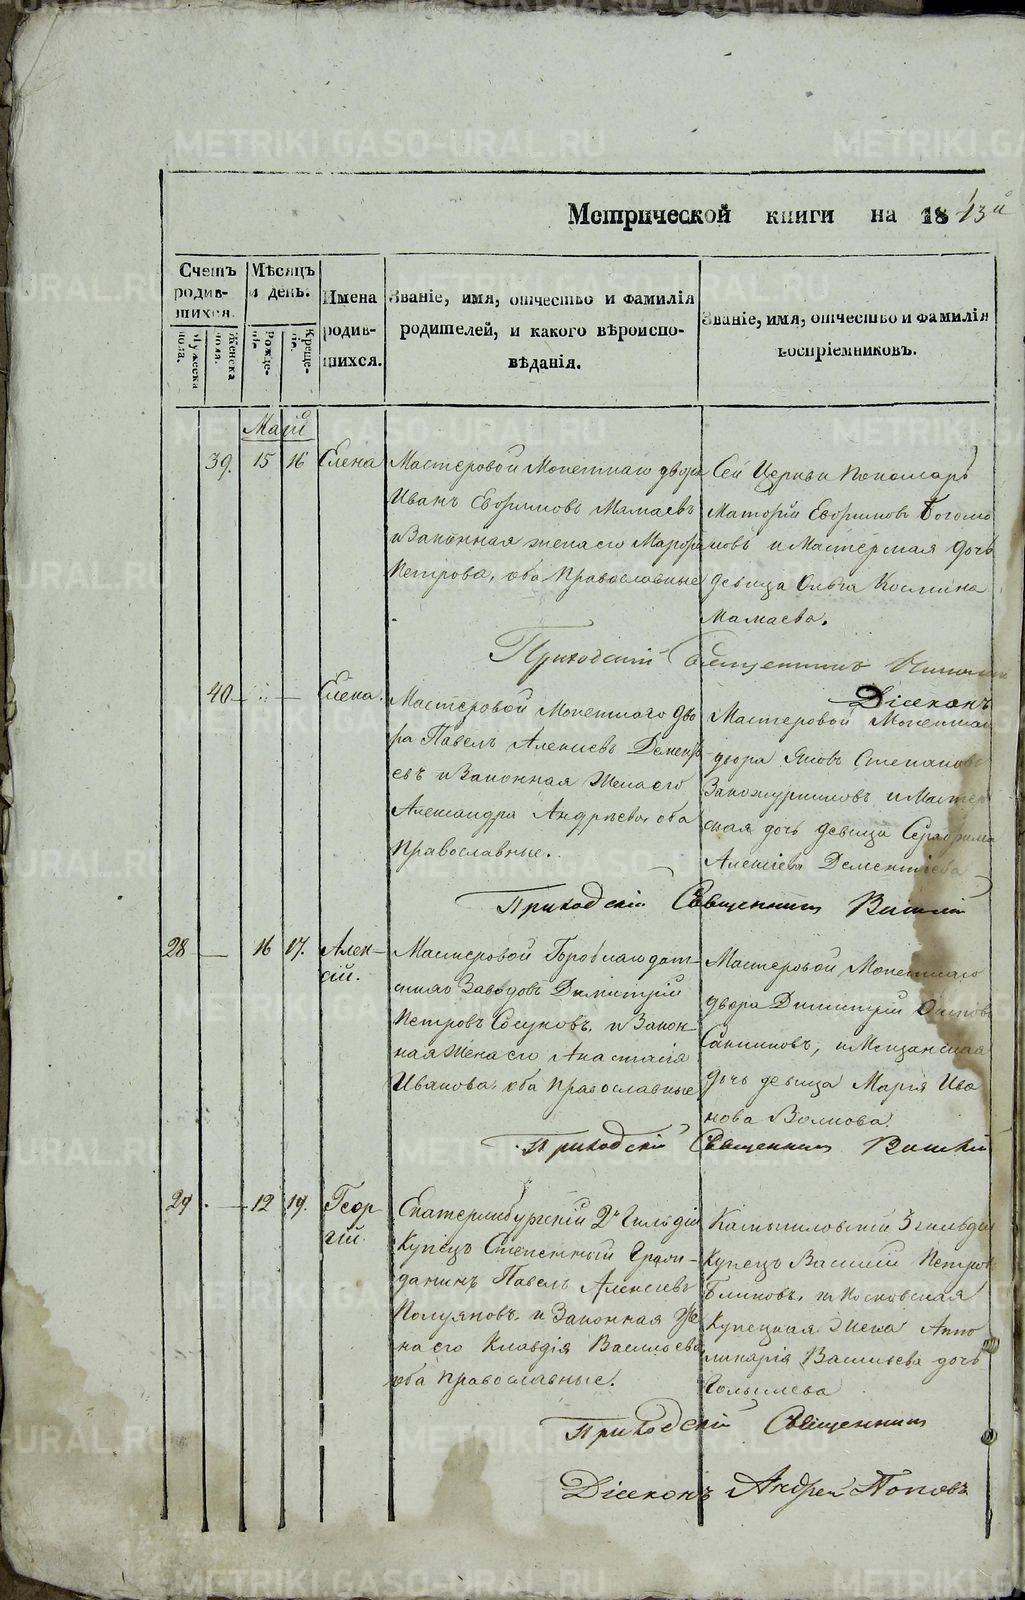 METRIKI.GASO-URAL.RU
Метрической книги на 1843й
Счетъ родив-шихся.
Мужеска пола.
Женска пола.
Мѣсяцъ и день.
Рожде-нія.
Креще-нія.
Имена родив-шихся.
Званіе, имя, отчество и фамилія
родителей, и какого вѣроиспо-
вѣданія.
Званіе, имя, отчество и фамилія
воспріемниковъ.
Маій
39. 15 16 Елена
Мастеровой Монетнаго двора
Иванъ Евфимовъ Мамаевъ
и Законная жена его Марфа
Петрова, оба Православные
Сей Церкви Пономарь
Евфимовъ Богомо
ловъ и Мастерская дочь
девица Ольга Космина
Мамаева.
Приходскій Священникъ
Діаконъ
40 — — Елена.
Мастеровой Монетнаго Дво
ра Павелъ Алексіевъ Дементь
евъ и Законная Жена его
Александра Андрѣева оба
Православные.
Мастеровой Монетнаго
двора Яковъ Степановъ
и Мастер
ская дочь девица Серафима
Алексіева Дементіева
Приходскій Священникъ
28 — 16 17. Алек-
сій.
Мастеровой
Заводовъ Димитрій
Петровъ Сосуновъ, и Закон-
ная Жена его Анастасія
Иванова, оба Православные
Мастеровой Монетнаго
двора Димитрій
и Мещанская
дочь девица Марія Ива
нова Волкова.
Приходскій Священникъ
29 — 12 19. Геор-
гій.
Екатеринбургскій 2й Гильдіи
Купецъ Степенный Граж-
данинъ Павелъ Алексеевъ
Полуяновъ и Законная Же
на его Клавдія Васильева
оба Православные.
Камышловскій 3 гильдіи
Купецъ Василій Петровъ
Блиновъ, и Московская
Купецкая Жена Аппо
линарія Васильева дочь
Приходскій Священникъ
Діаконъ Андрей Поповъ